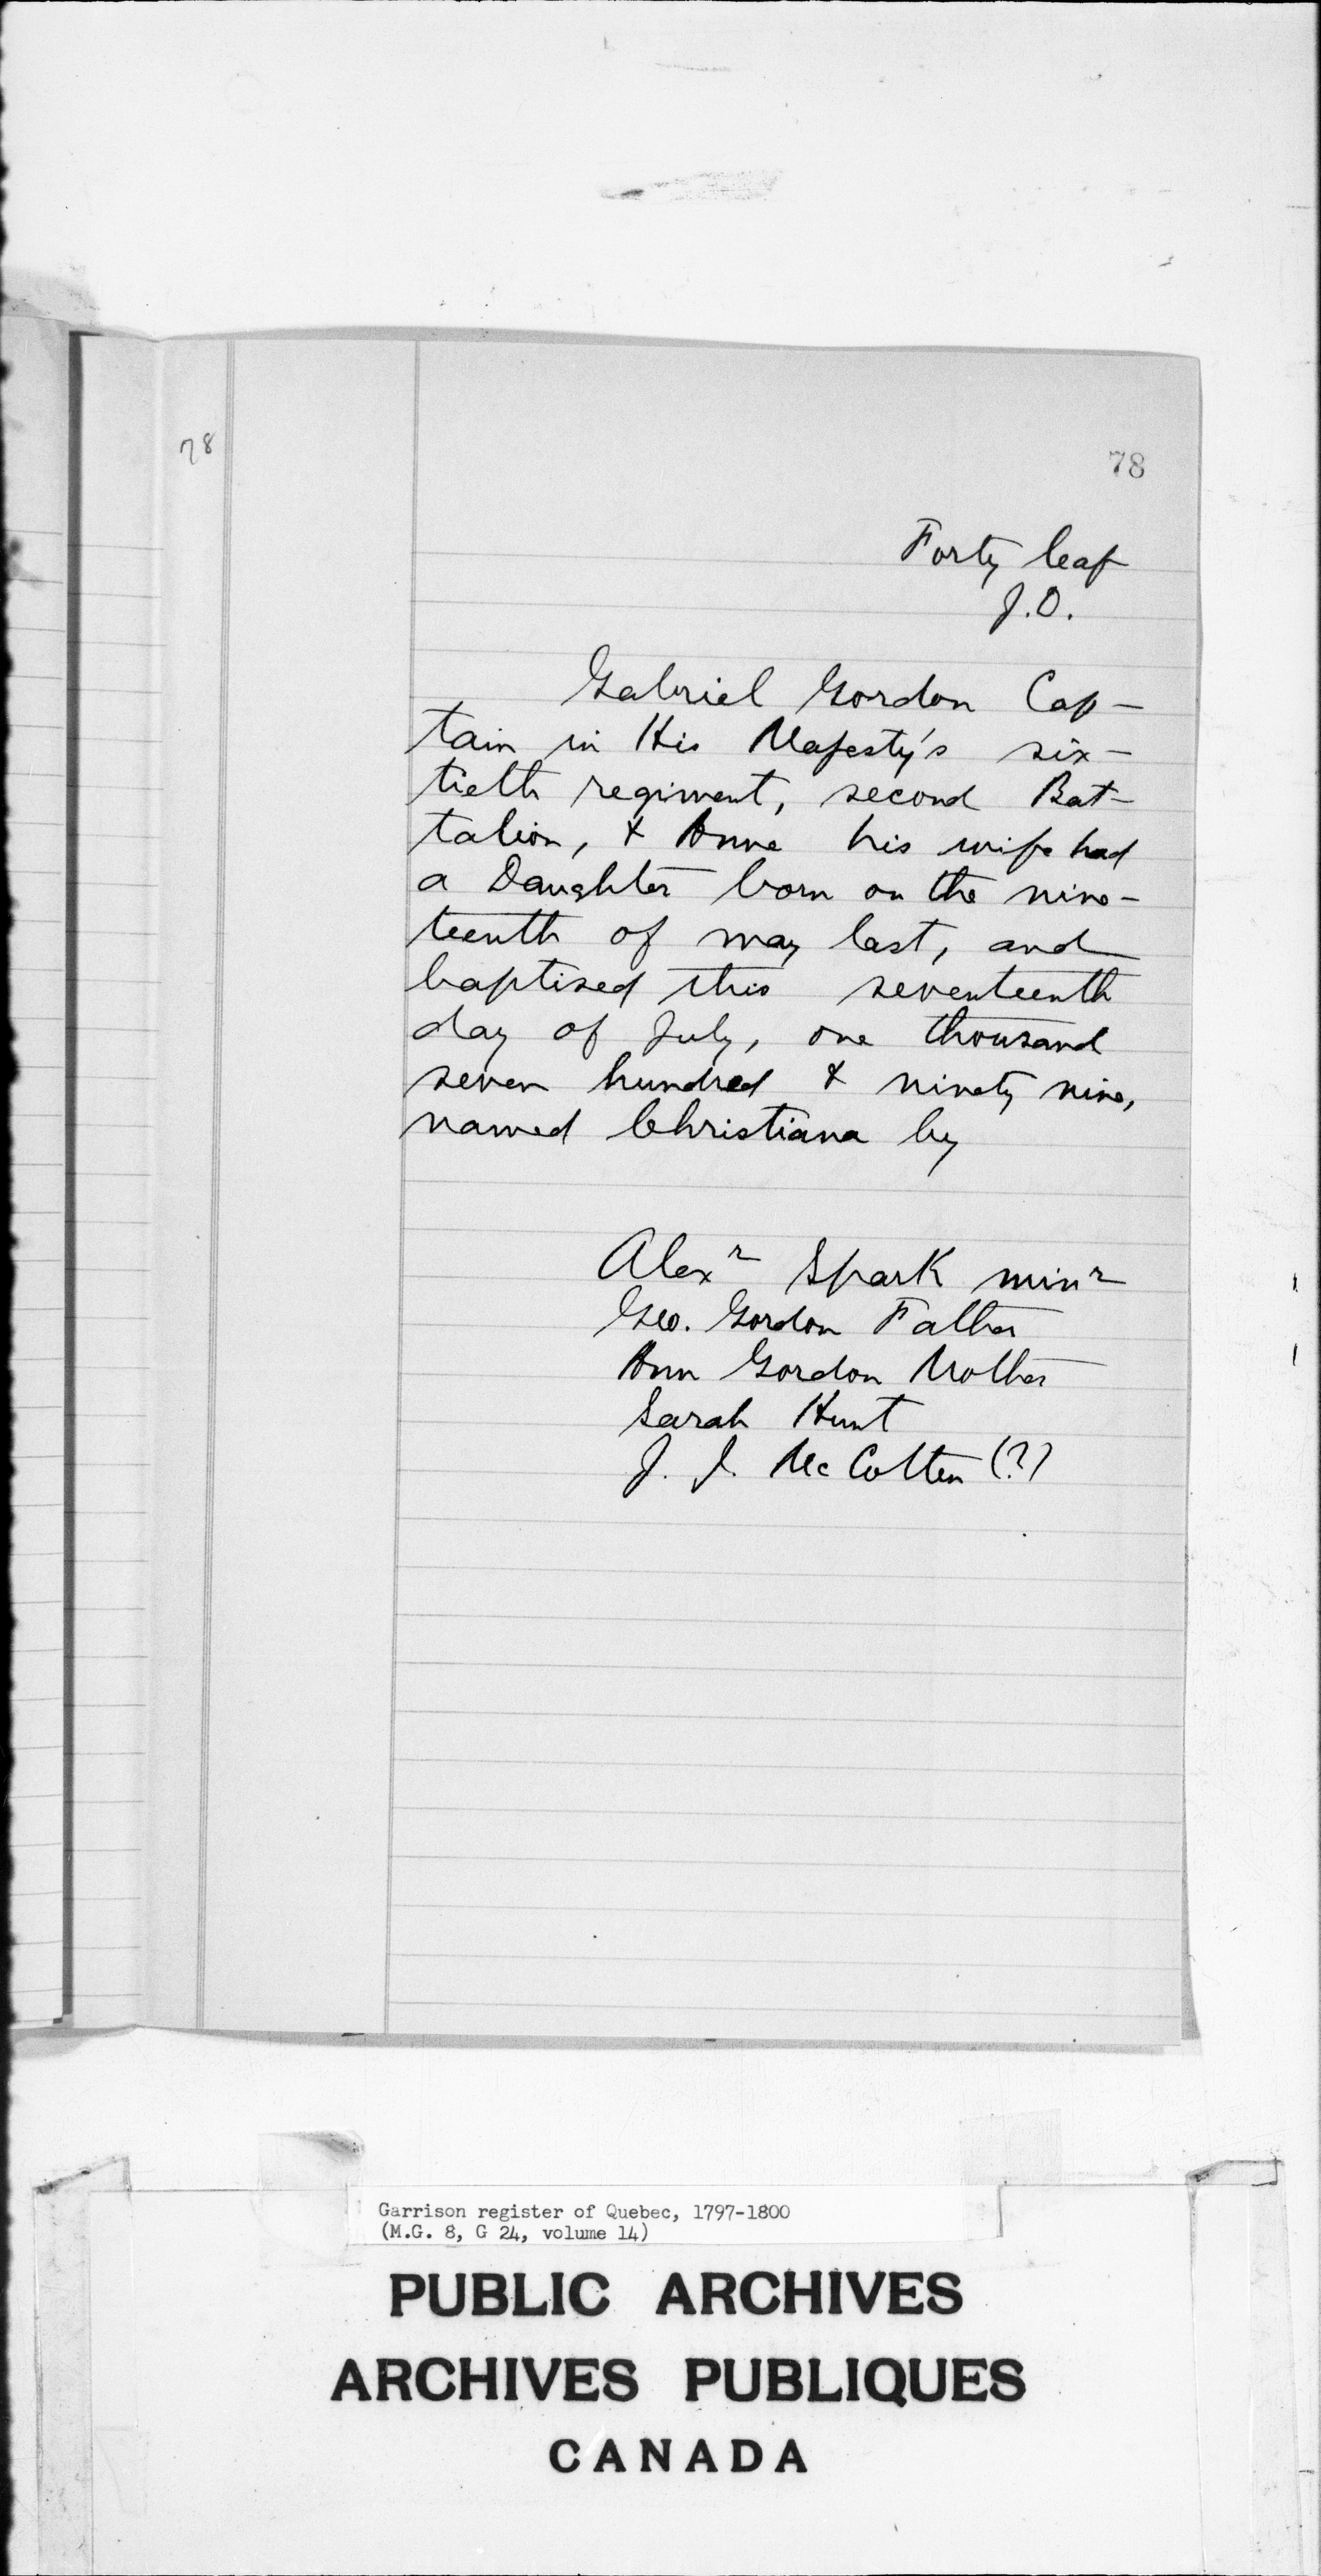 78
78
Forty leaf
J.O.
Gabriel Gordon Cap-
tain in His Majesty's six-
tieth regiment, second Bat-
talion, & Anne his wife had
a Daughter born on the nine-
teenth of may last, and
baptised this seventeenth
day of July, one thousand
seven hundred & ninety nine,
named Christiana by
Alexr Spark minr
Geo. Gordon Father
Ann Gordon Mother
Sarah Hunt
J. J. McCotten (?)
Garrison register of Quebec, 1797-1800
(M.G. 8, G 24, volume 14)
PUBLIC ARCHIVES
ARCHIVES PUBLIQUES
CANADA